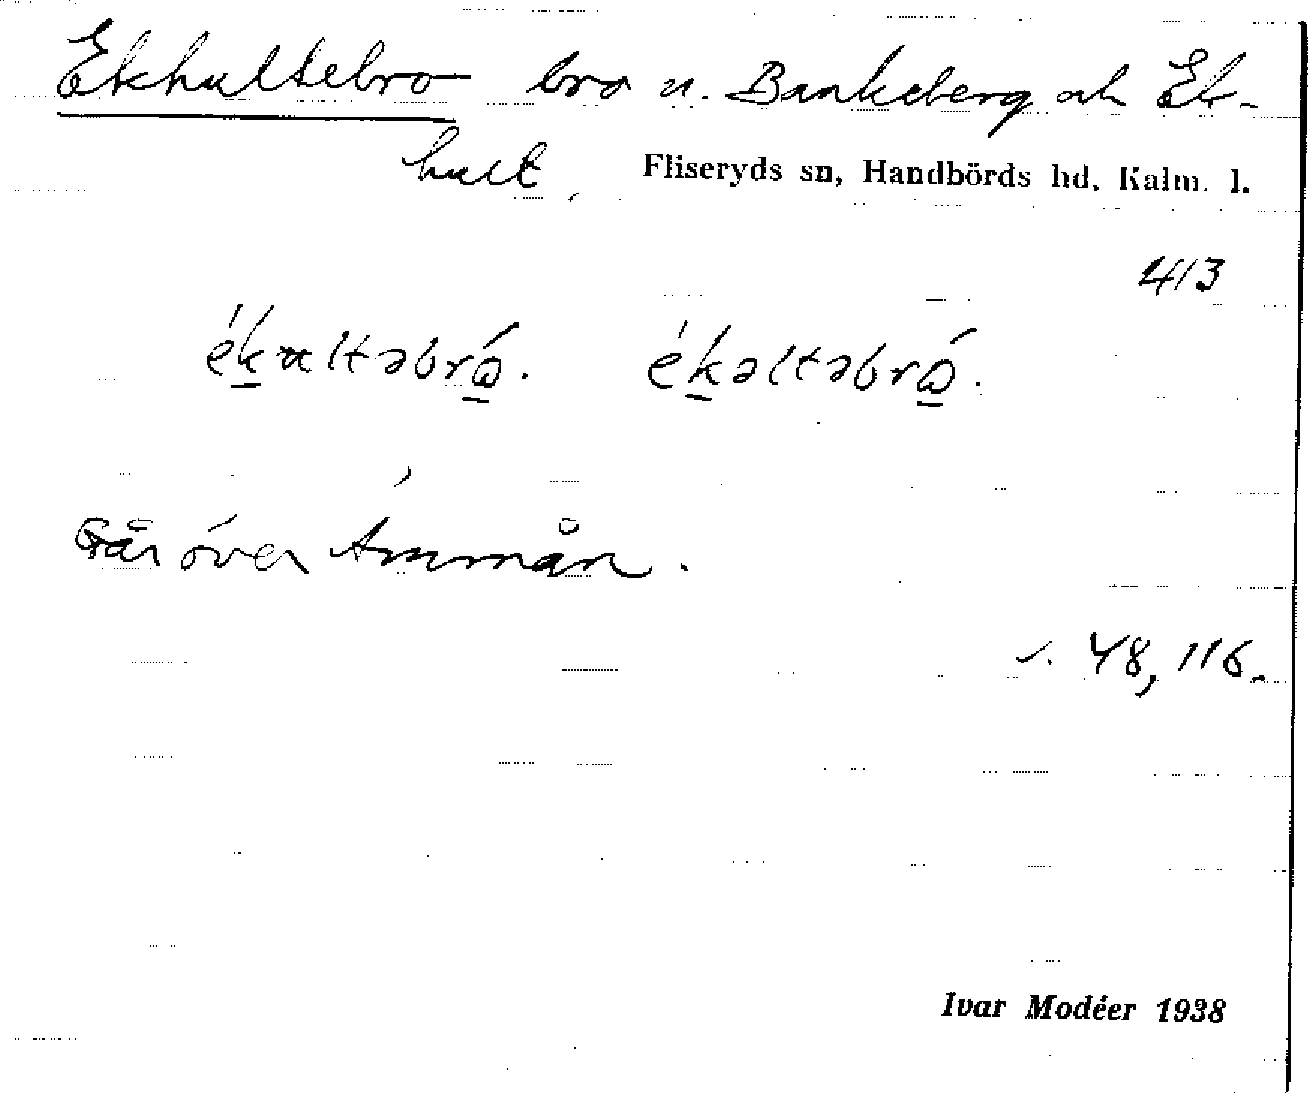 Ekhultebro bro n. Bankeberg och Ek-
hult. Fliseryds sn, Handbörds hd, Kalm. l.
413
ékultəbró. ékəltəbró.
Går över Åmmån.
s. 48, 116.
Ivar Modéer 1938